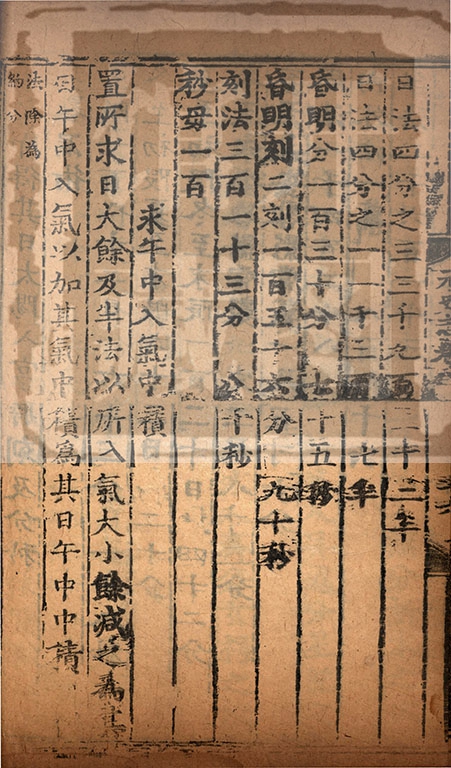 日法四分之三三千九百二十二半
日法四分之一一千三百七半
昏明分一百三十分七十五秒
昏明刻二刻一百五十六分九十秒
刻法三百一十三分十秒
秒母一百
求午中入氣中積
置所求日大餘及半法以所入氣大小餘減之為其
日午中入氣以加其氣中積為其日午中中積
法除為
約分